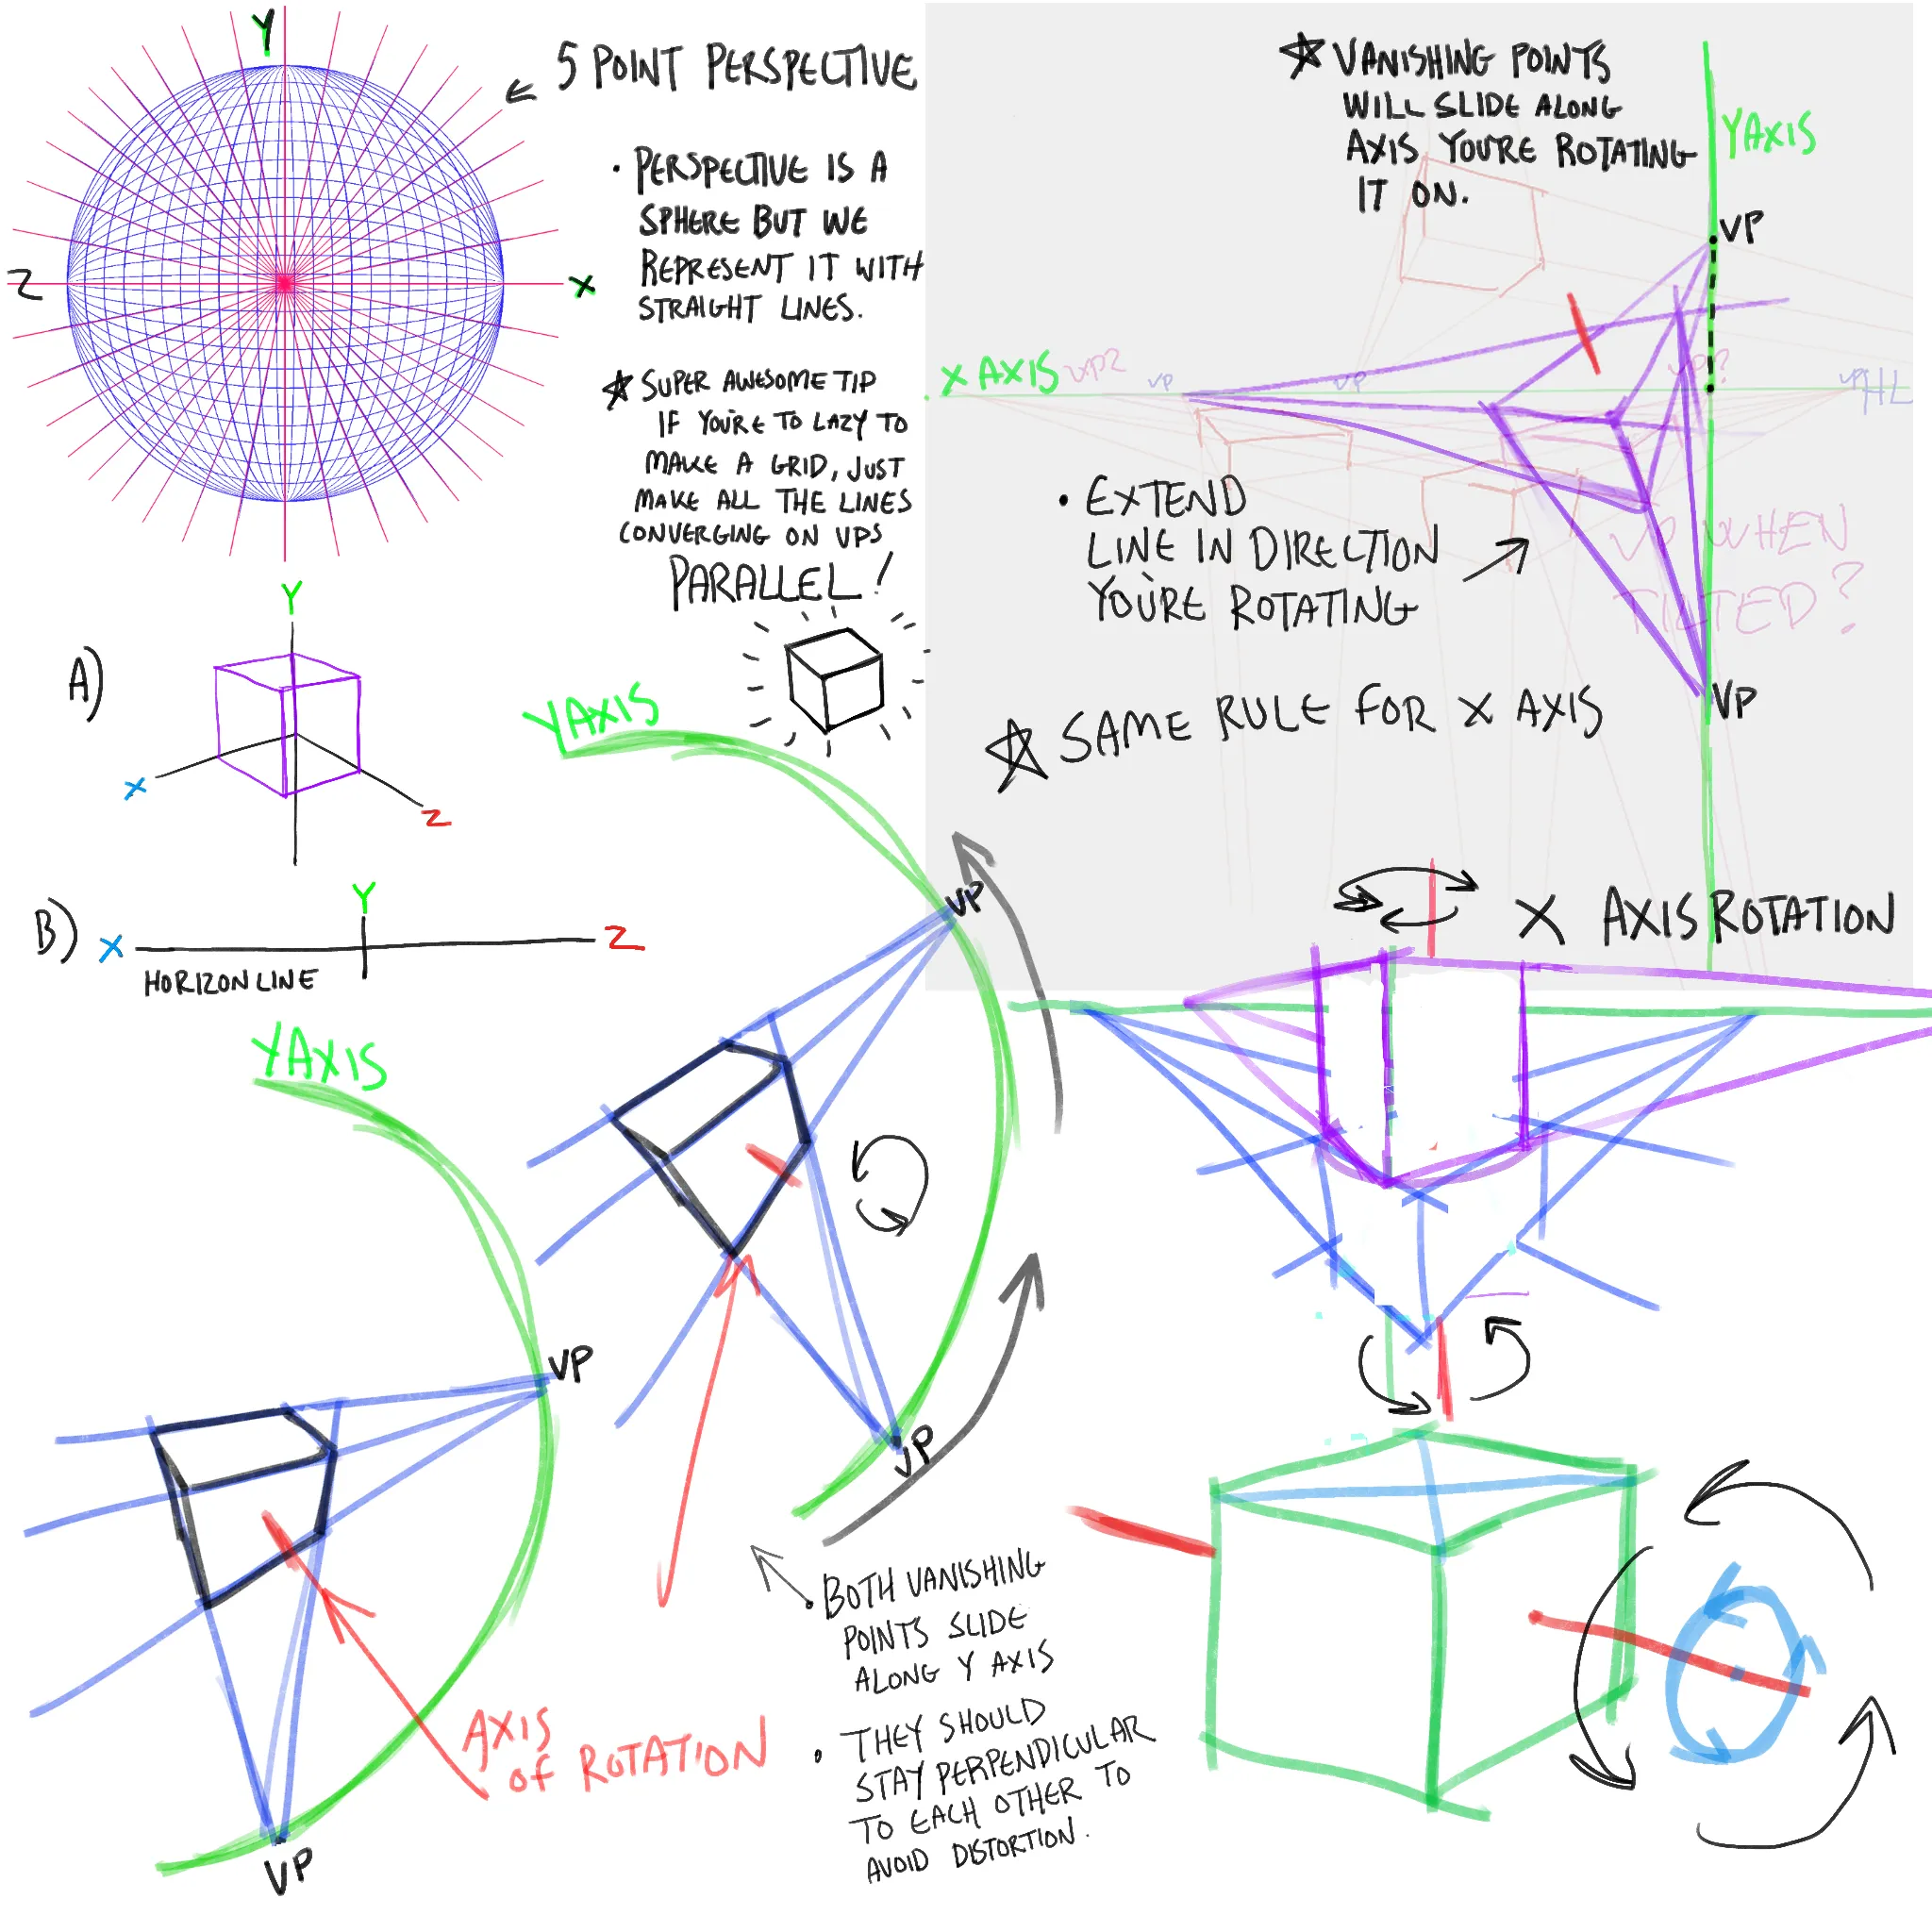 Y
Z
X
5 POINT PERSPECTIVE
• PERSPECTIVE IS A
SPHERE BUT WE
REPRESENT IT WITH
STRAIGHT LINES.
SUPER AWESOME TIP
IF YOU'RE TO LAZY TO
MAKE A GRID, JUST
MAKE ALL THE LINES
CONVERGING ON VPS
PARALLEL!
VANISHING POINTS
WILL SLIDE ALONG
AXIS YOU'RE ROTATING
IT ON.
Y AXIS
VP
X AXIS
VP2
VP
VP
VP?
VP
HL
• EXTEND
LINE IN DIRECTION
YOU'RE ROTATING
VP WHEN
TILTED?
VP
SAME RULE FOR X AXIS
A)
Y
X
Z
B)
X
Y
Z
HORIZON LINE
Y AXIS
VP
VP
X AXIS ROTATION
Y AXIS
VP
VP
AXIS
OF ROTATION
• BOTH VANISHING
POINTS SLIDE
ALONG Y AXIS
• THEY SHOULD
STAY PERPENDICULAR
TO EACH OTHER TO
AVOID DISTORTION.